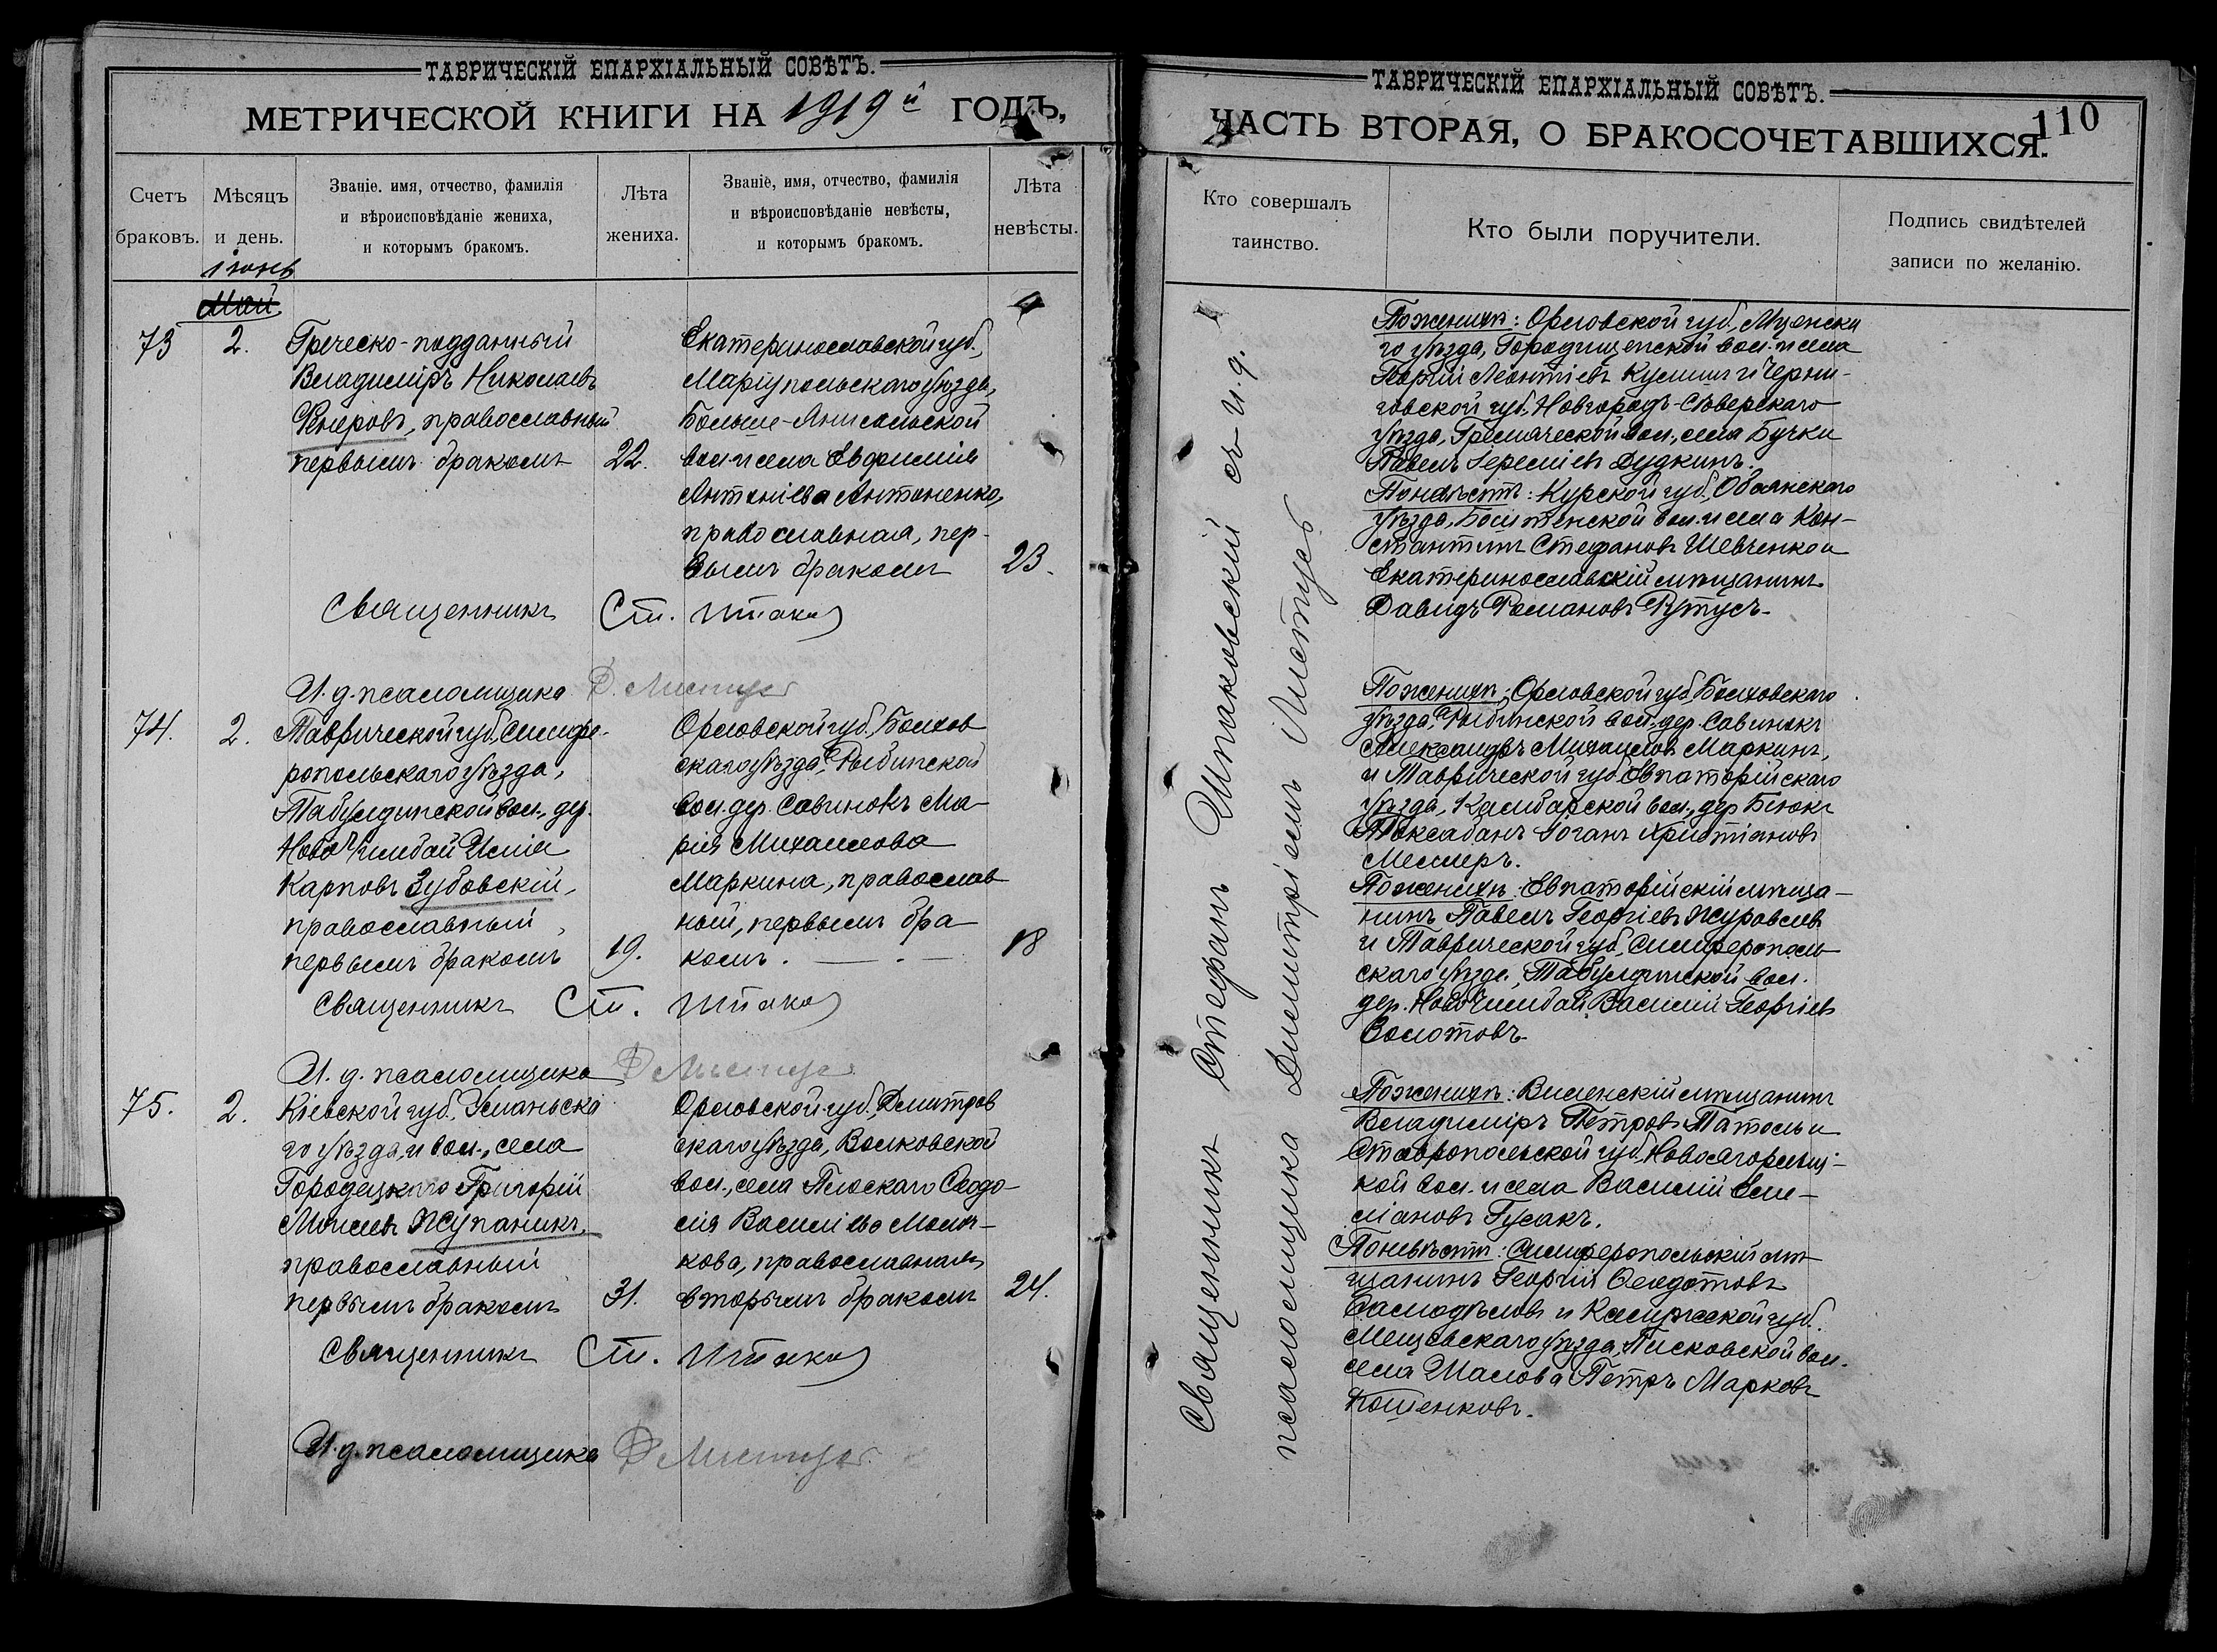 ТАВРИЧЕСКІЙ ЕПАРХІАЛЬНЫЙ СОВѢТЪ.
МЕТРИЧЕСКОЙ КНИГИ НА 1919й ГОДЪ,
Счетъ браковъ.
Мѣсяцъ и день.
Званіе. имя, отчество, фамилія
и вѣроисповѣданіе жениха,
и которымъ бракомъ.
Лѣта
жениха.
Званіе, имя, отчество, фамилія
и вѣроисповѣданіе невѣсты,
и которымъ бракомъ.
Лѣта
невѣсты.
Іюнь
Май
73
2.
Греческо-подданный
Владиміръ Николаевъ
Фенеровъ, православный
первымъ бракомъ
22.
Екатеринославской губ.,
Маріупольскаго уѣзда,
Больше-Янисольской
вол. и села Евфимія
Антоніева Антоненко,
православная, пер-
вымъ бракомъ
23.
Священникъ Ст. Шпако
И. д. псаломщика Д. Листуев
74.
2.
Таврической губ. Симфе-
ропольскаго уѣзда,
Табулдинской вол., дер.
Ново Чимбай Илія
Карповъ Зубовскій,
православный,
первымъ бракомъ
19.
Орловской губ. Болхов
скаго уѣзда, Рыбинской
вол. дер. Савинокъ Ма-
рія Михаилова
Маркина, православ
ной, первымъ бра
комъ.
18
Священникъ Ст. Шпако
И. д. псаломщика Д Листуев
75.
2.
Кіевской губ., Уманьска
го уѣзда, и вол., села
Городецкаго Григорій
Моисеевъ Жупаникъ,
православный
первымъ бракомъ
31.
Орловской губ. Дмитров
скаго уѣзда, Волковской
вол., села Плоскаго Феодо-
сія Василіева
кова, православная
вторымъ бракомъ
24.
Священникъ Ст. Шпако
И. д. псаломщика Д Листуев
ТАВРИЧЕСКІЙ ЕПАРХІАЛЬНЫЙ СОВѢТЪ.
110
ЧАСТЬ ВТОРАЯ, О БРАКОСОЧЕТАВШИХСЯ.
Кто совершалъ
таинство.
Кто были поручители.
Подпись свидѣтелей
записи по желанію.
Священникъ Стефанъ Шпаковскій съ и. д.
псаломщика Димитріемъ
По женихѣ: Орловской губ., Мценска
го уѣзда, Городищенской вол. и села
Георгій Леонтіевъ и Черни-
говской губ., Новгородъ-Сѣверскаго
уѣзда, Гремяческой вол., села Бучки
Павелъ Іереміевъ Дудкинъ.
По невѣстѣ: Курской губ., Обоянскаго
уѣзда, вол. и села Кон-
стантинъ Стефановъ Шевченко и
Екатеринославскій мѣщанинъ
Давидъ Романовъ
По женихѣ: Орловской губ. Болховскаго
уѣзда, Рыбинской вол., дер. Савинокъ
Александръ Михаиловъ Маркинъ,
и Таврической губ. Евпаторійскаго
уѣзда, Камбарской вол., дер. Біюкъ
Токсабанъ Іоганъ Христіановъ
По женихѣ: Евпаторійскій мѣща-
нинъ Павелъ Георгіевъ Журавлевъ
и Таврической губ., Симферополь
скаго уѣзда, Табулдинской вол.
дер. Ново Чимбай Василій Георгіевъ
Золотовъ.
По женихѣ: Виленскій мѣщанинъ
Владиміръ Петровъ и
Ставропольской губ.
кой вол. и села Василій Еме-
ліановъ Гусакъ.
По невѣстѣ: Симферопольскій мѣ
щанинъ Георгій Феодотовъ
Самодѣловъ и Калужской губ.
Мещовскаго уѣзда, вол.
села Шалова Петръ Марковъ
Кошенковъ.